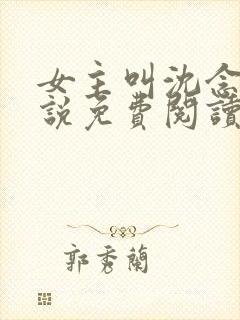 女主叫沈念
說免費閱讀
郭秀蘭